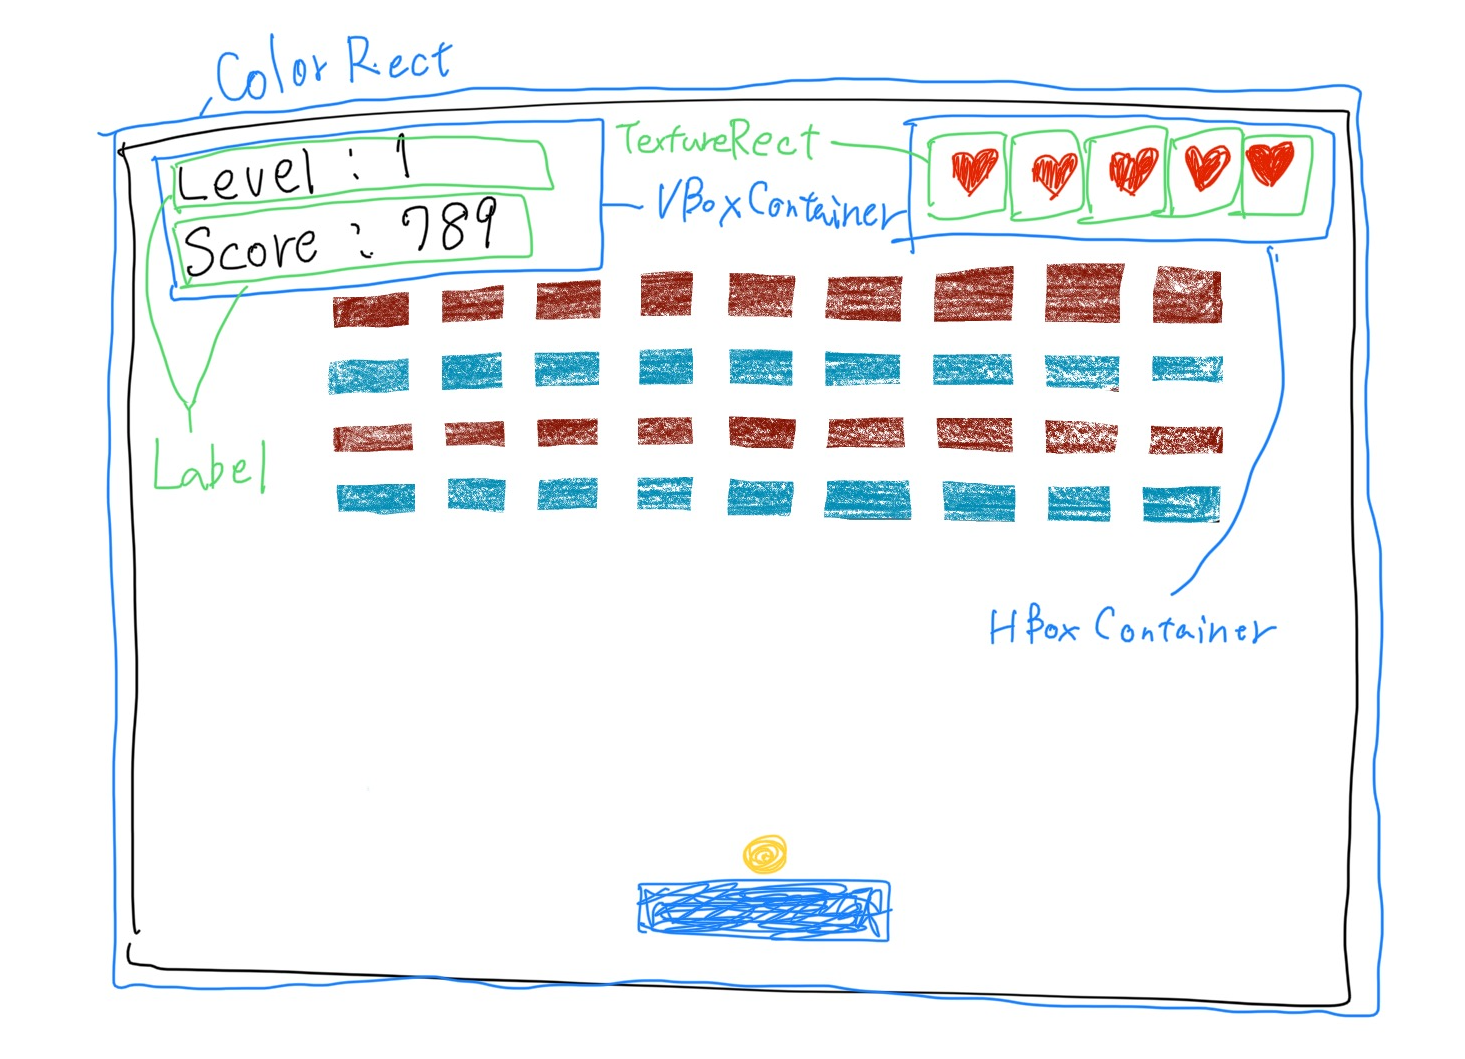 Color Rect
Level : 1
Score : 789
TextureRect
VBoxContainer
Label
HBox Container